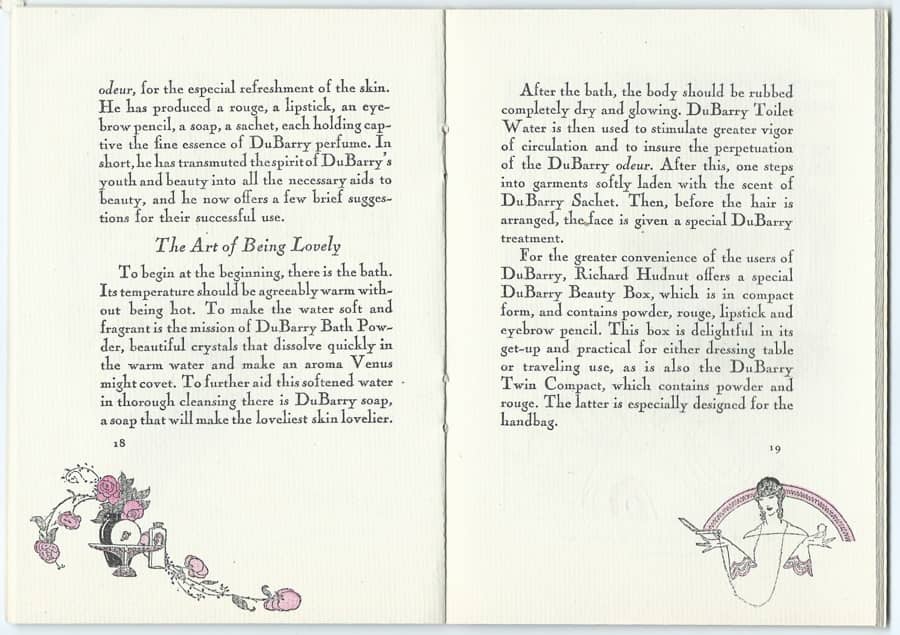 odeur, for the especial refreshment of the skin.
He has produced a rouge, a lipstick, an eye-
brow pencil, a soap, a sachet, each holding cap-
tive the fine essence of DuBarry perfume. In
short, he has transmuted the spirit of DuBarry's
youth and beauty into all the necessary aids to
beauty, and he now offers a few brief sugges-
tions for their successful use.
The Art of Being Lovely
To begin at the beginning, there is the bath.
Its temperature should be agreeably warm with-
out being hot. To make the water soft and
fragrant is the mission of DuBarry Bath Pow-
der, beautiful crystals that dissolve quickly in
the warm water and make an aroma Venus
might covet. To further aid this softened water
in thorough cleansing there is DuBarry soap,
a soap that will make the loveliest skin lovelier.
18
After the bath, the body should be rubbed
completely dry and glowing. DuBarry Toilet
Water is then used to stimulate greater vigor
of circulation and to insure the perpetuation
of the DuBarry odeur. After this, one steps
into garments softly laden with the scent of
DuBarry Sachet. Then, before the hair is
arranged, the face is given a special DuBarry
treatment.
For the greater convenience of the users of
DuBarry, Richard Hudnut offers a special
DuBarry Beauty Box, which is in compact
form, and contains powder, rouge, lipstick and
eyebrow pencil. This box is delightful in its
get-up and practical for either dressing table
or traveling use, as is also the DuBarry
Twin Compact, which contains powder and
rouge. The latter is especially designed for the
handbag.
19